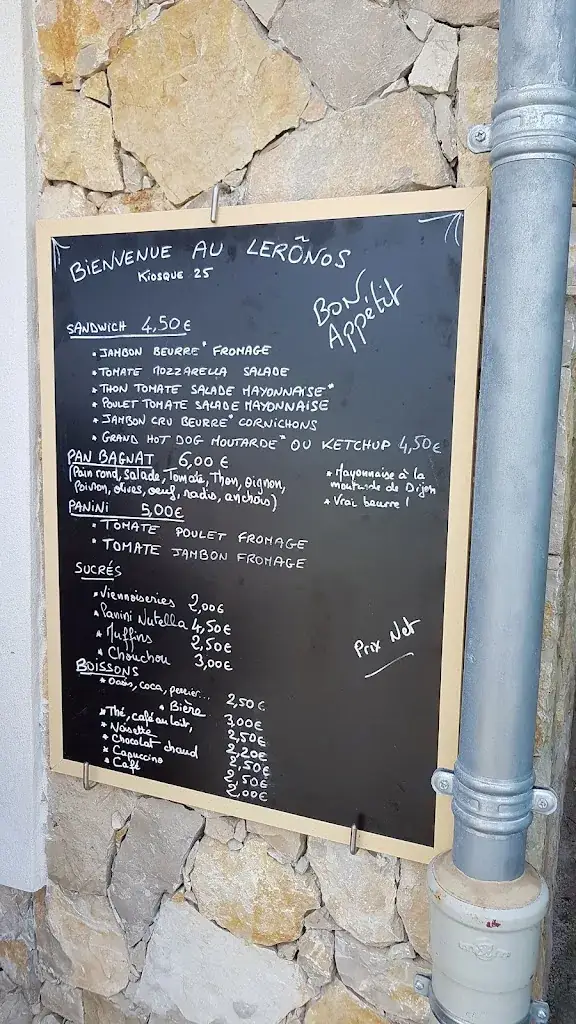 BIENVENUE AU LERÔNOS
KIOSQUE 25
BON Appétit
SANDWICH 4,50€
* JAMBON BEURRE* FROMAGE
* TOMATE MOZZARELLA SALADE
* THON TOMATE SALADE MAYONNAISE*
* POULET TOMATE SALADE MAYONNAISE
* JAMBON CRU BEURRE* CORNICHONS
* GRAND HOT DOG MOUTARDE* OU KETCHUP 4,50€
PAN BAGNAT 6,00€
(Pain rond, salade, Tomate, Thon, oignon,
Poivron, olives, oeuf, radis, anchois)
* Mayonnaise à la
moutarde de Dijon
* Vrai beurre !
PANINI 5,00€
* TOMATE POULET FROMAGE
* TOMATE JAMBON FROMAGE
SUCRÉS
* Viennoiseries 2,00€
* Panini Nutella 4,50€
* Muffins 2,50€
* Chouchou 3,00€
Prix Net
BOISSONS
* Oasis, coca, perrier... 2,50€
* Bière 3,00€
* Thé, café au lait, 2,50€
* Noisette 2,20€
* Chocolat chaud 2,50€
* Capuccino 2,50€
* Café 2,00€